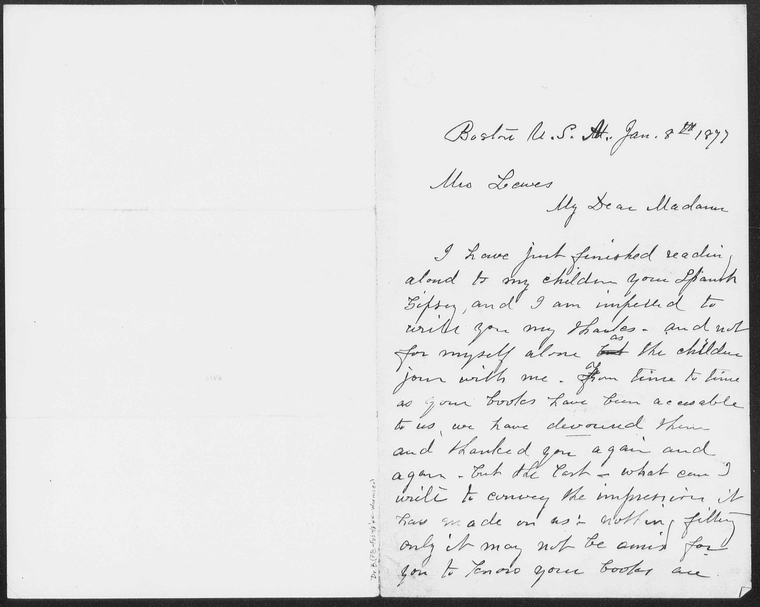 Boston U. S. A. Jan. 8th 1877
Mrs Lewes
My Dear Madam
I have just finished reading
aloud to my children your Spanish
Gipsey, and I am impelled to
write you my thanks - and not
for myself alone but as the children
join with me. From time to time
as your books have been accessable
to us, we have devoured them
and thanked you again and
again - but the last - what can I
write to convey the impression it
has made on us - nothing fitting
only it may not be amiss for
you to know your books are